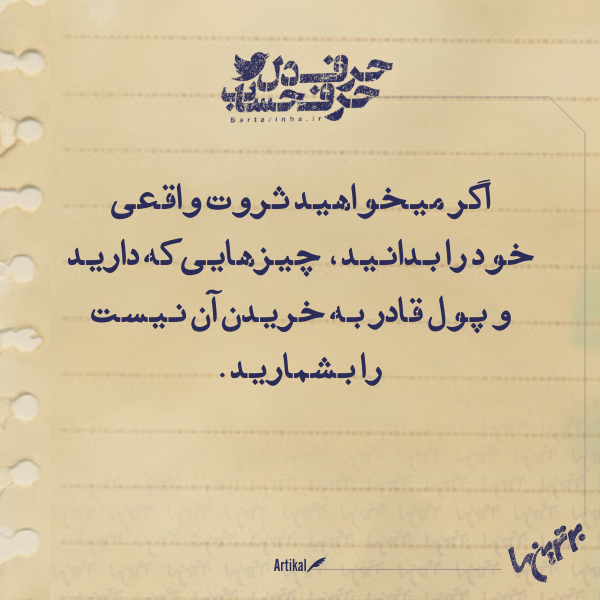 حرف دل
حرف حساب
Bartarinha.ir
اگر میخواهید ثروت واقعی
خود را بدانید، چیزهایی که دارید
و پول قادر به خریدن آن نیست
را بشمارید.
Artikal
برترین‌ها